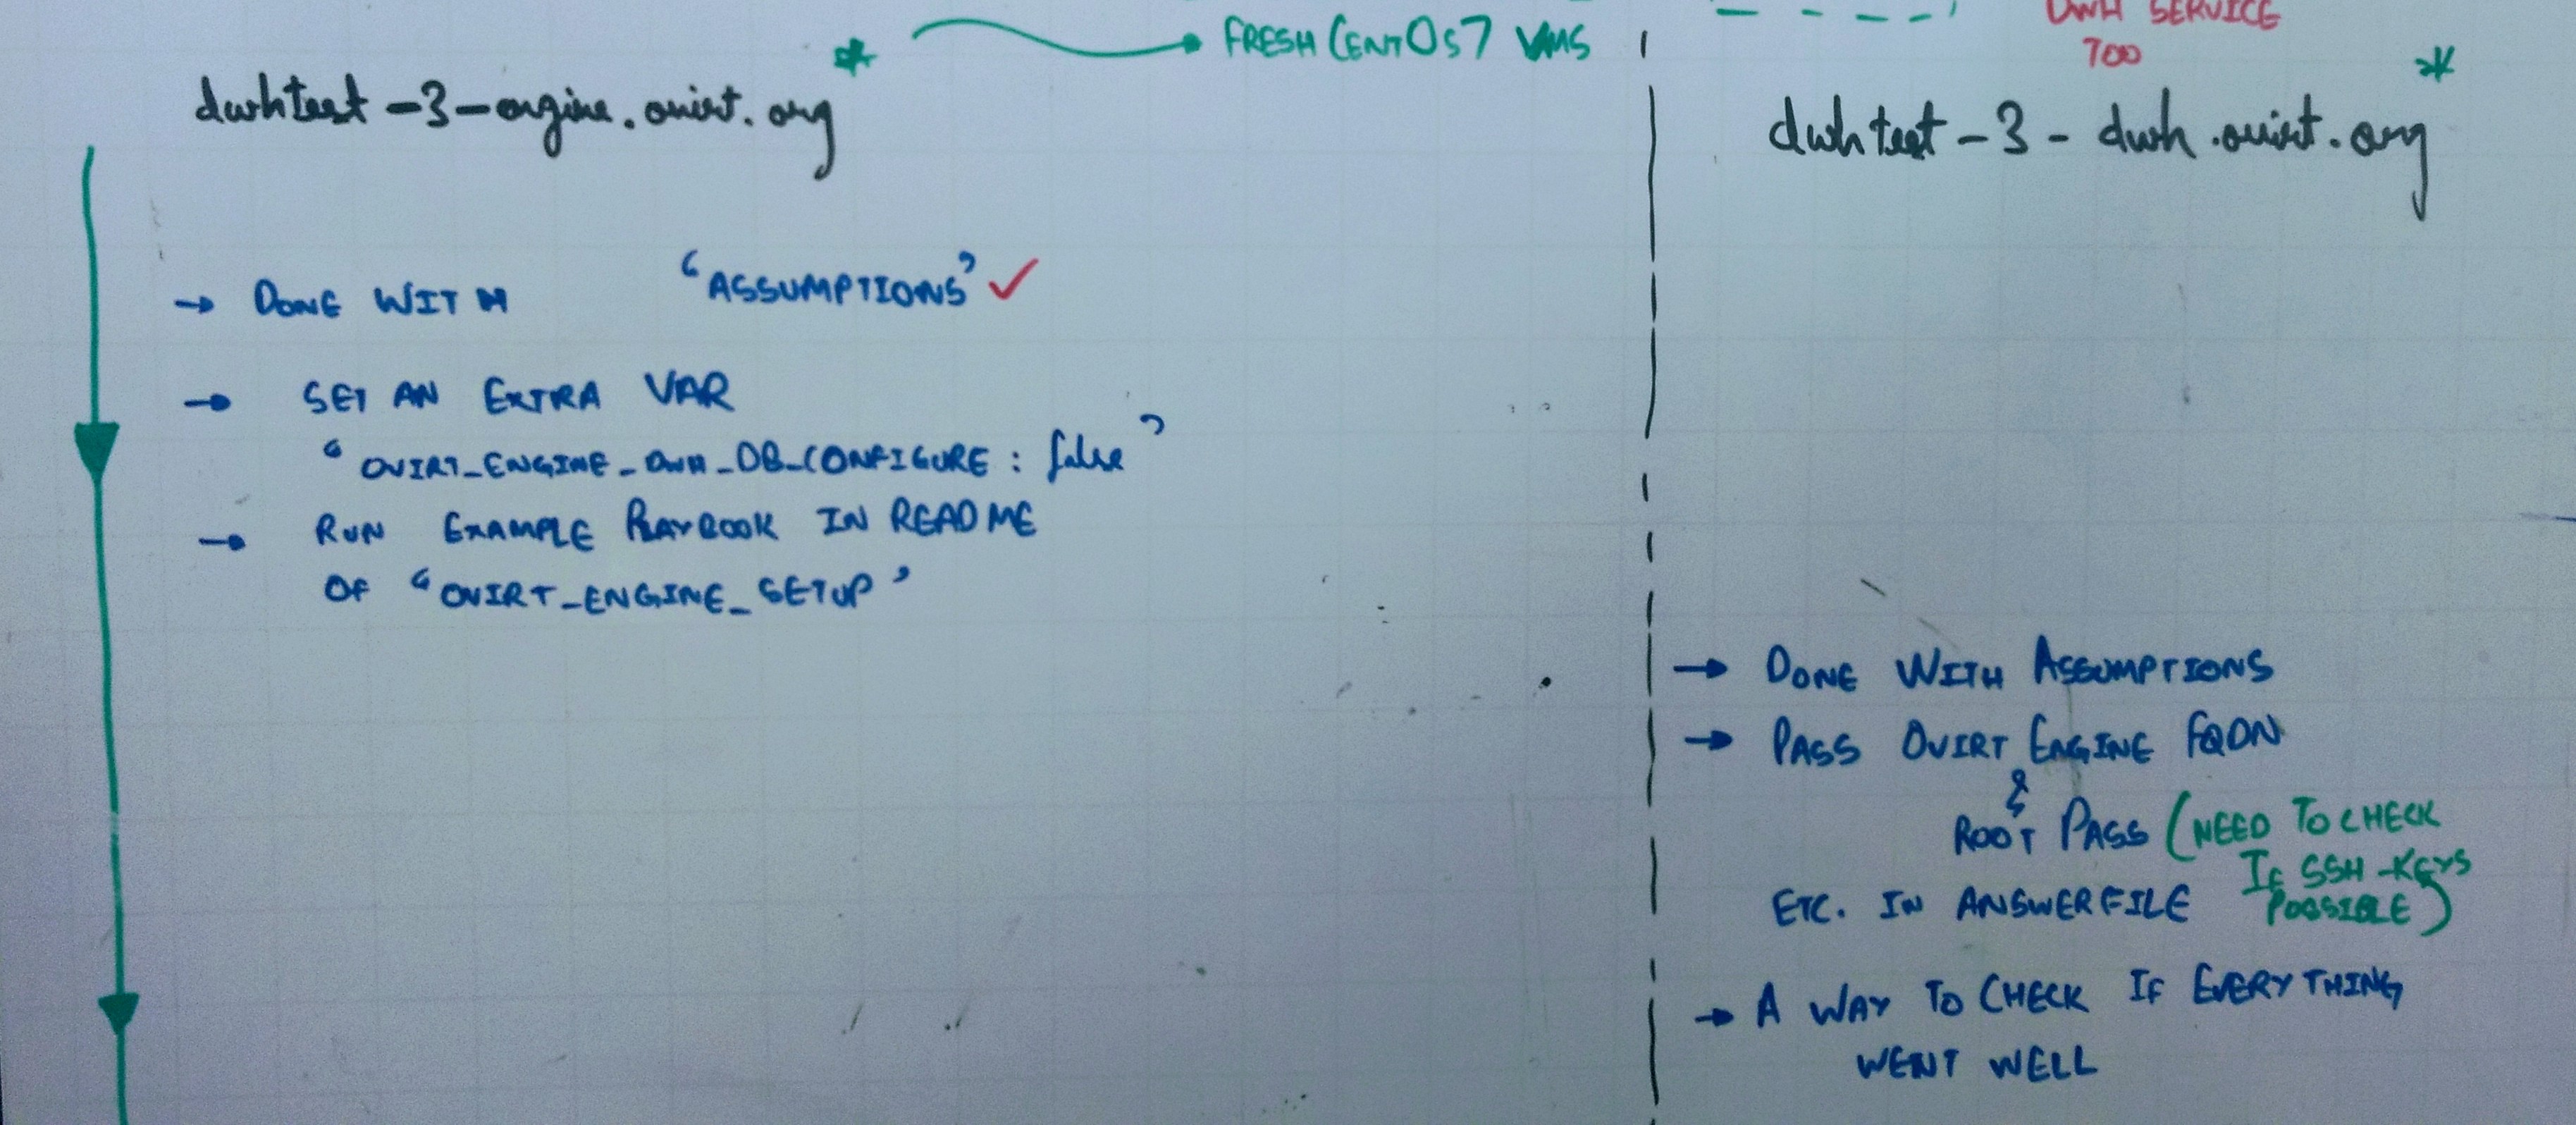 FRESH CENTOS7 VMS
DWH SERVICE
TOO
dwhtest-3-engine.ovirt.org*
dwhtest-3-dwh.ovirt.org*
→ DONE WITH "ASSUMPTIONS" ✓
→ SET AN EXTRA VAR
"OVIRT_ENGINE_DWH_DB_CONFIGURE: false"
→ RUN EXAMPLE PLAYBOOK IN README
OF "OVIRT_ENGINE_SETUP"
→ DONE WITH ASSUMPTIONS
→ PASS OVIRT ENGINE FQDN
&
ROOT PASS (NEED TO CHECK
IF SSH-KEYS
ETC. IN ANSWERFILE POSSIBLE)
→ A WAY TO CHECK IF EVERYTHING
WENT WELL